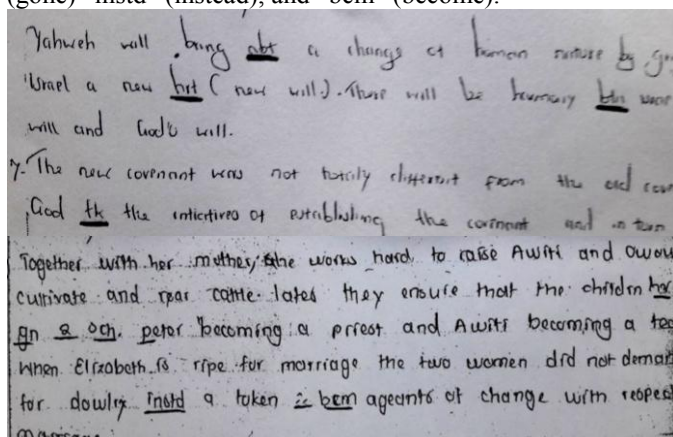 (gone) "instd" (instead), and "bcm" (become).
Yahweh will bring abt a change of human nature by
Israel a new hrt ( new will.). There will be harmony btn
will and God's will.
7. The new covenant was not totally different from the old
God tk the of establishing the covenant and in turn
Together with her mother, she works hard to raise Awiti and
cultivate and rear cattle. later they ensure that the children
gn 2 sch. peter becoming a priest and Awiti becoming a
When Elizabeth is ripe for marriage the two women did not
for dowry instd a token is bcm ageants of change with respect